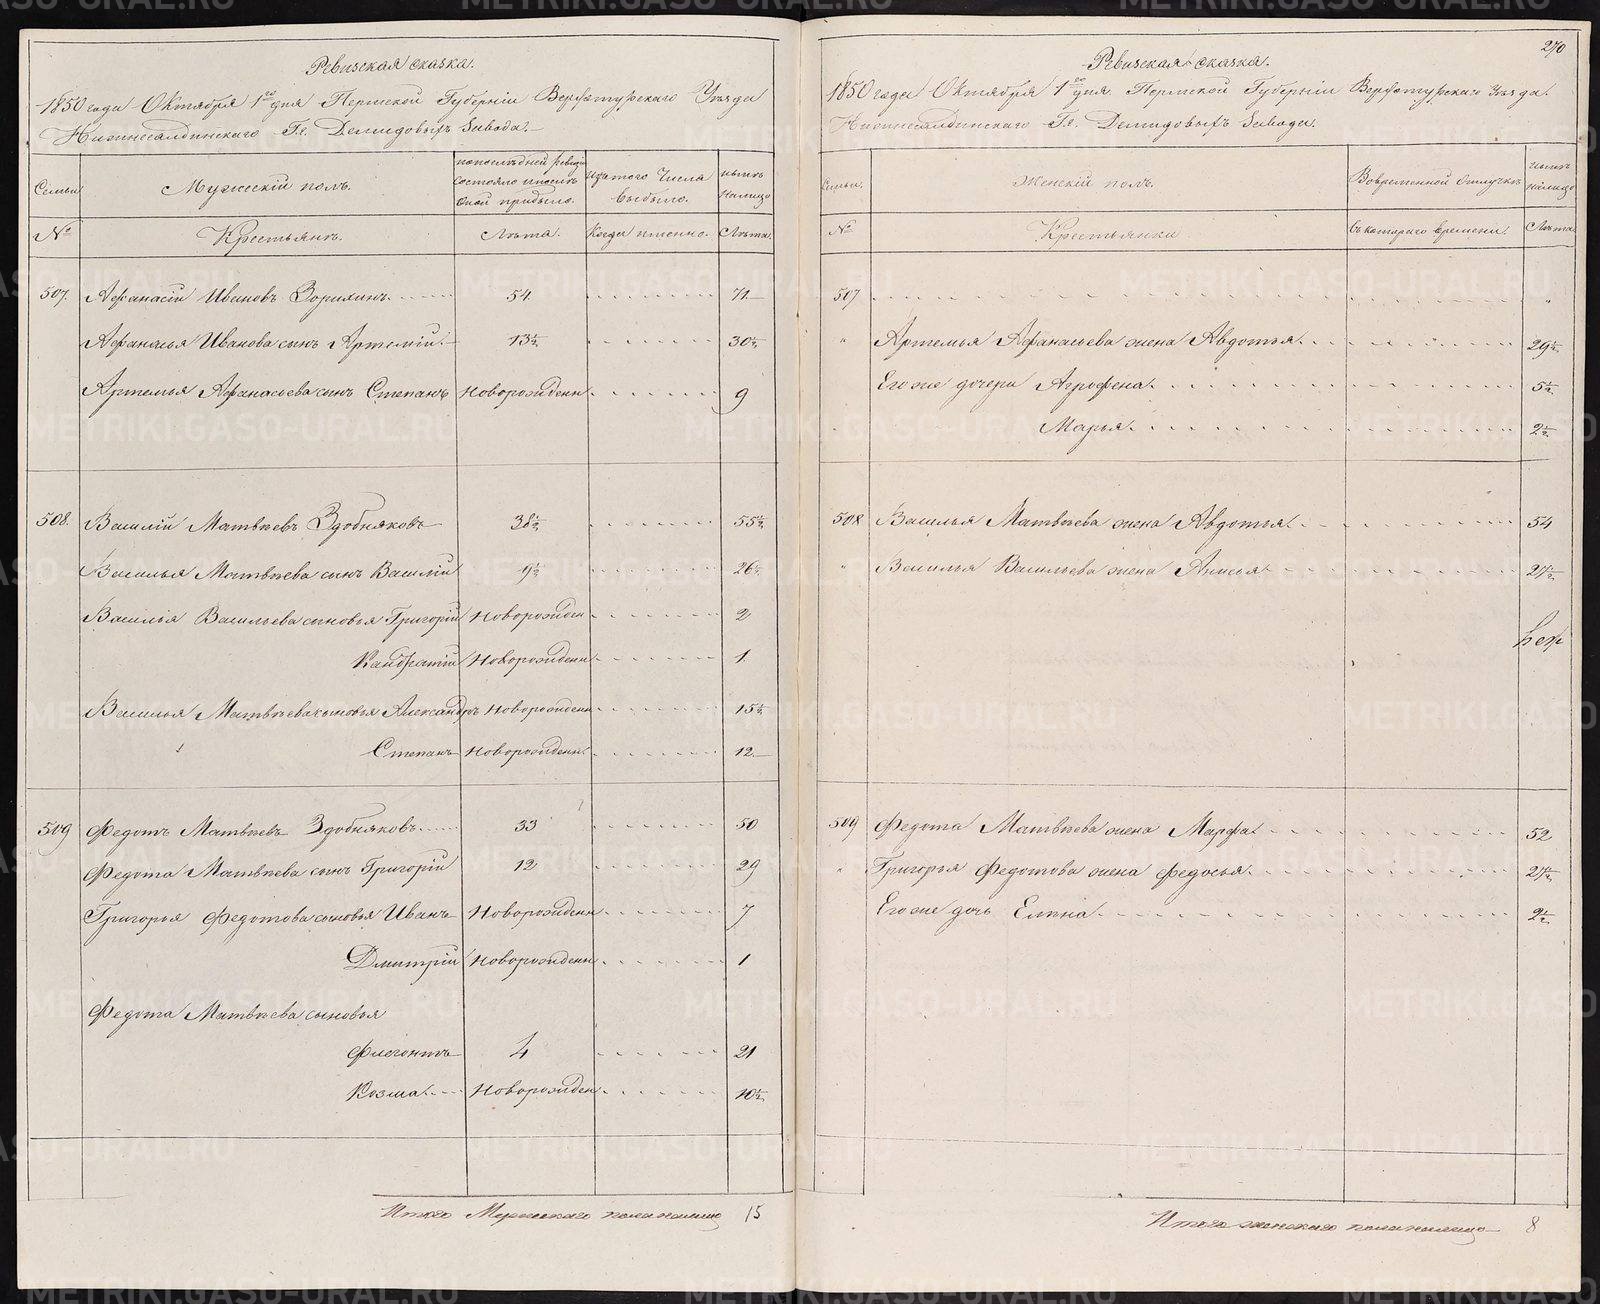 Ревизская сказка.
1850 года Октября 1го дня Пермской Губерніи Верхотурскаго Уѣзда
Нижнесалдинскаго Гг. Демидовыхъ Завода.
Семьи
Мужескій полъ.
по послѣдней ревизіи состояло и послѣ оной прибыло.
Изъ того числа выбыло.
нынѣ на лицо
№
Крестьянъ.
Лѣта.
Когда именно.
Лѣта.
507. Афанасіи Ивановъ Зорихинъ 54. 71
Афанасья Иванова сынъ Артемій 13½ 30½
Артемья Афанасьева сынъ Степанъ Новорожден 9
508. Василій Матвѣевъ Здобняковъ 38½ 55½
Василья Матвѣева сынъ Василій 9½ 26½
Василья Васильева сыновья Григорій Новорожден 2
Кандратій Новорожден 1
Василья Матвѣева сыновья Александръ Новорожден 15½
Степанъ Новорожден 12
509 Федотъ Матвѣевъ Здобняковъ 33 50
Федота Матвѣева сынъ Григорій 12 29
Григорья Федотова сыновья Иванъ Новорожден 7
Дмитрій Новорожден 1
Федота Матвѣева сыновья
Флегонтъ 4 21
Козма Новорожден 10½
Итого Мужескаго пола налицо 15
270
Ревизская сказка.
1850 года Октября 1го дня. Пермской Губерніи Верхотурскаго Уѣзда.
Нижнесалдинскаго Гг. Демидовыхъ Завода.
Семьи.
Женскій полъ.
Во временной отлучкѣ
нынѣ на лицо
№
Крестьянки
Съ котораго времени.
Лѣта
507
Артемья Афанасьева жена Авдотья 29½
Его же дочери Агрофена 5½
Марья 2½
508 Василья Матвѣева жена Авдотья 54
Василья Васильева жена Анисья 27½
509 Федота Матвѣева жена Марфа 52
Григорья Федотова жена Федосья 27½
Его же дочь Елена 2½
Итого женскаго пола налицо 8
METRIKI.GASO-URAL.RU